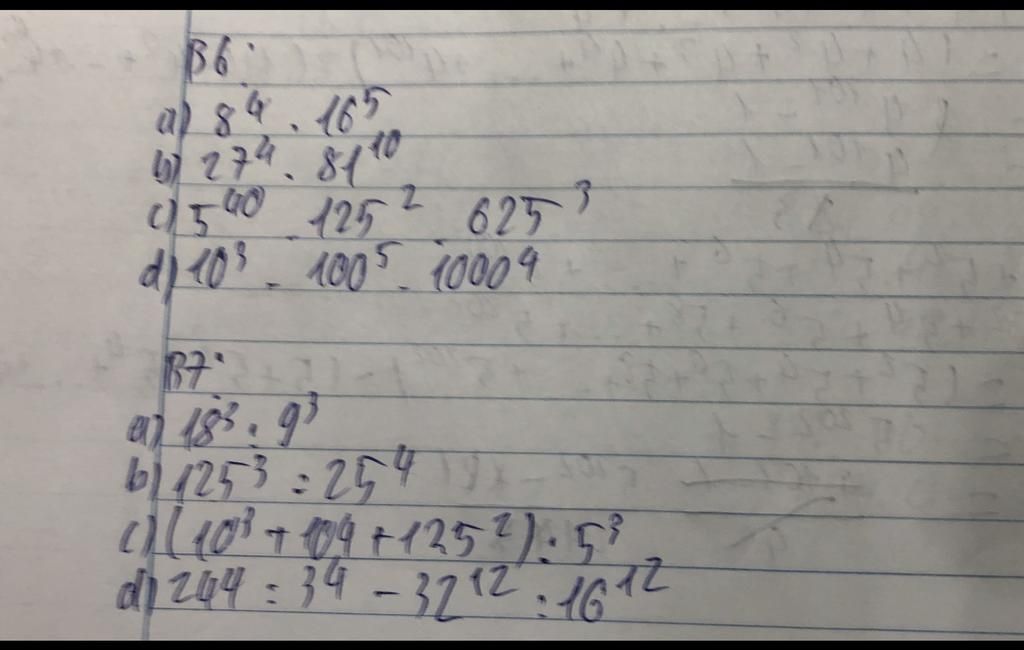 B6:
a) 8⁴ . 16⁵
b) 27⁴ . 81¹⁰
c) 5⁴⁰ . 125² . 625³
d) 10³ . 100⁵ . 1000⁴
B7:
a) 18³ : 9³
b) 125³ : 25⁴
c) (10³ + 10⁴ + 125²) : 5³
d) 24⁴ : 3⁴ - 32¹² : 16¹²